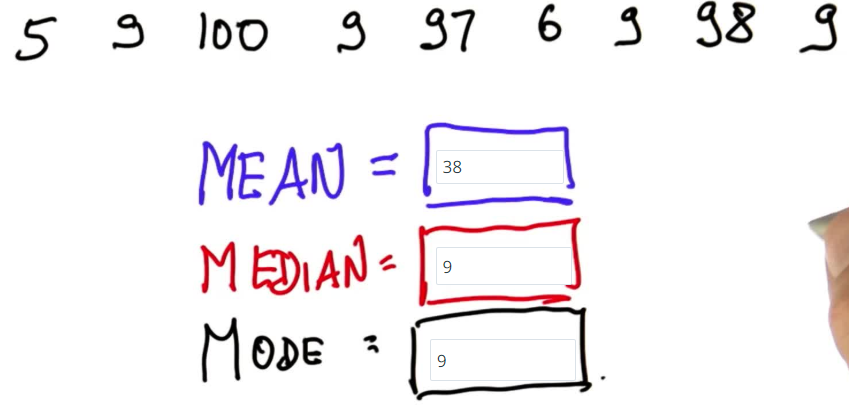 5 9 100 9 97 6 9 98 9
MEAN = 38
MEDIAN = 9
MODE = 9.